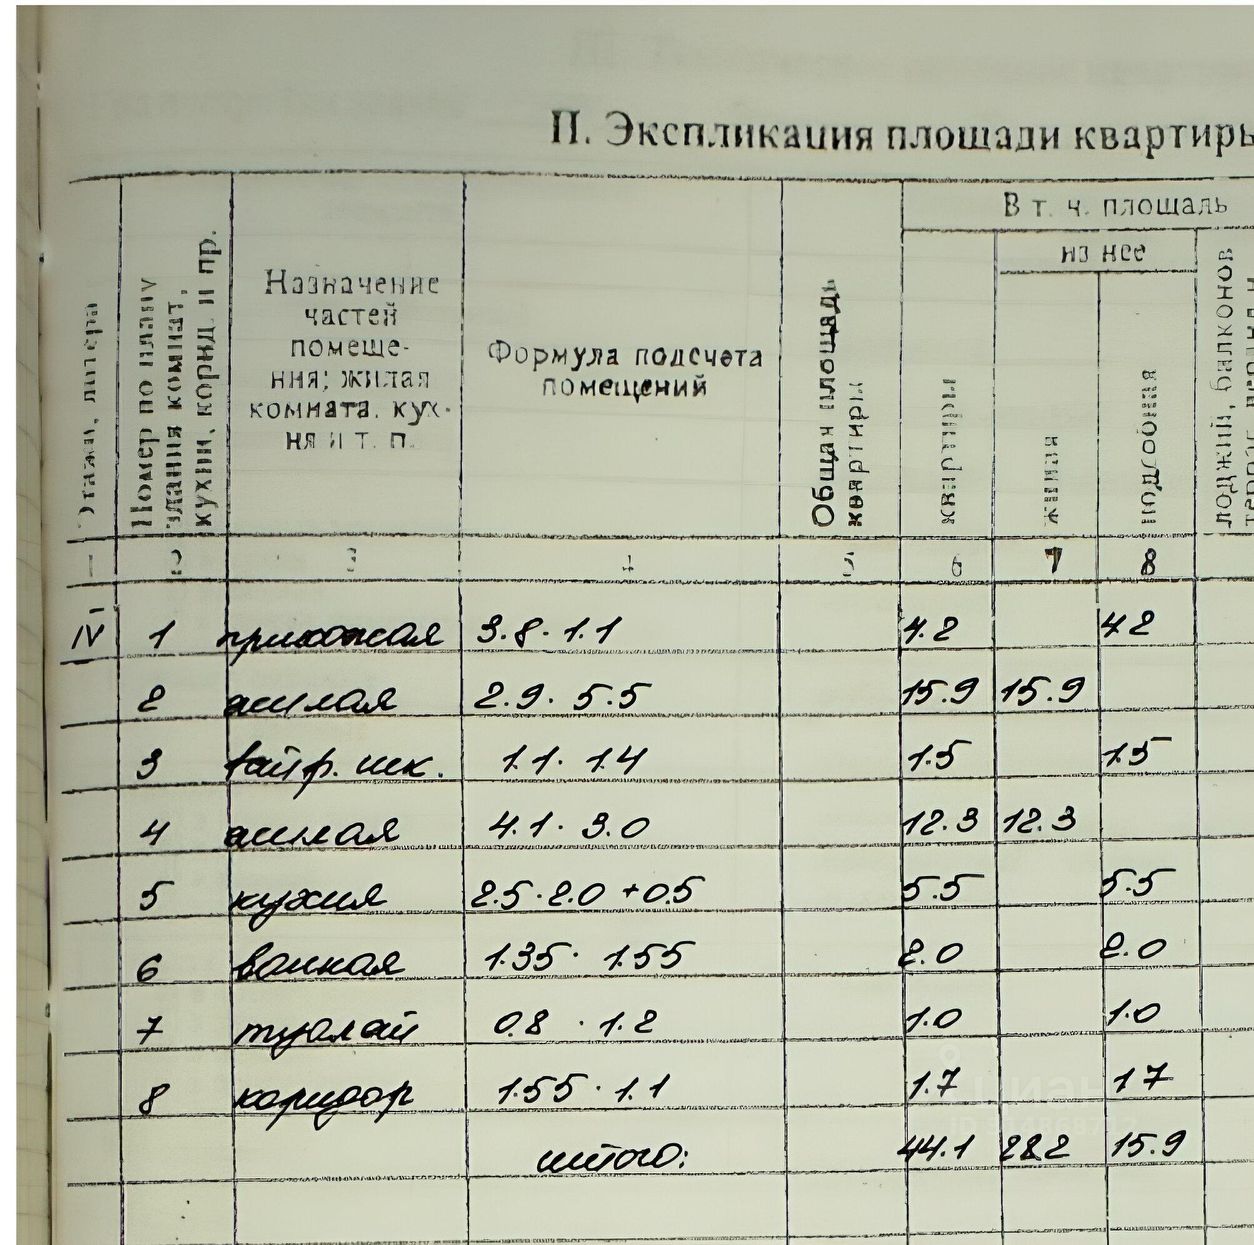 II. Экспликация площади квартиры
Этажи, литера
Номер по плану
здания комнат,
кухни, корид. и пр.
Назначение
частей
помеще-
ния; жилая
комната, кух-
ня и т. п.
Формула подсчета
помещений
Общая площадь
квартиры
В т. ч. площадь
квартиры
из нее
жилая
подсобная
лоджий, балконов
1 2 3 4 5 6 7 8
IV 1 прихожая 3.8 · 1.1 4.2 4.2
2 жилая 2.9 · 5.5 15.9 15.9
3 1.1 · 1.4 1.5 1.5
4 жилая 4.1 · 3.0 12.3 12.3
5 кухня 2.5 · 2.0 + 0.5 5.5 5.5
6 ванная 1.35 · 1.55 2.0 2.0
7 туалет 0.8 · 1.2 1.0 1.0
8 коридор 1.55 · 1.1 1.7 1.7
итого: 44.1 28.2 15.9